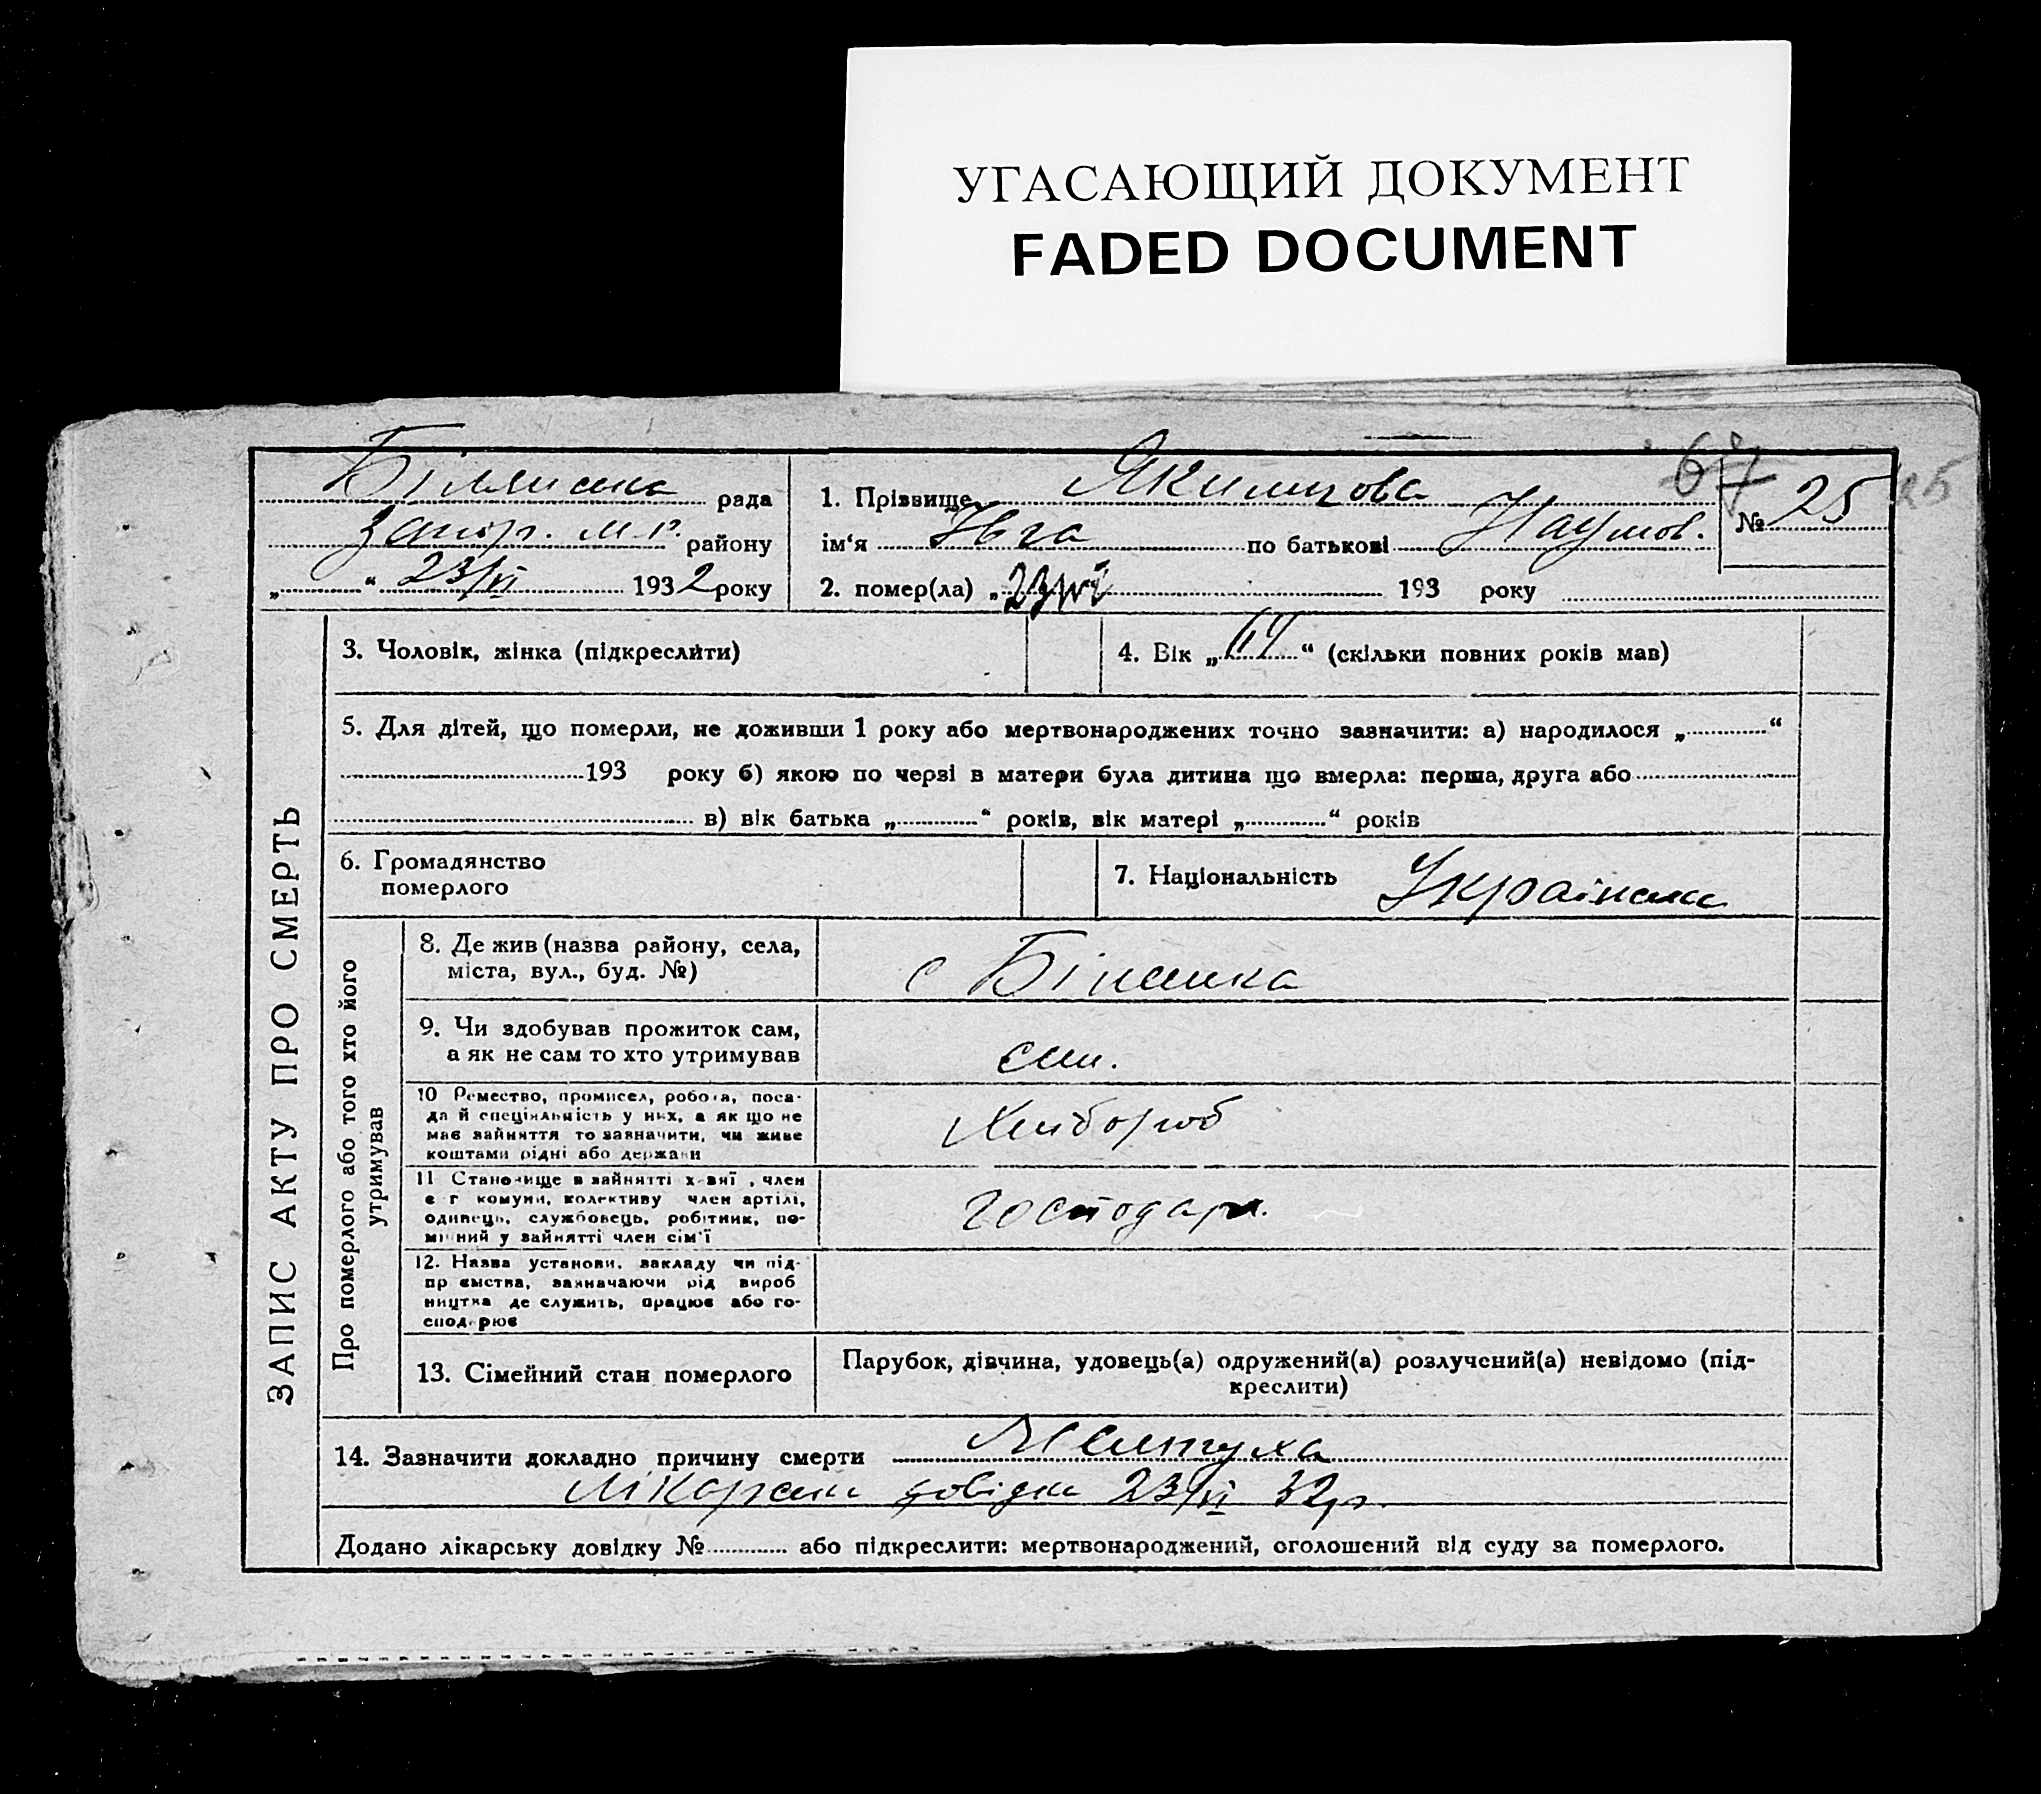 УГАСАЮЩИЙ ДОКУМЕНТ
FADED DOCUMENT
Біленька рада
Запор. м.р. району
„ “ 23/VI 1932 року
1. Прізвище Якимцова
ім‘я Ївга по батькові Наумов.
2. помер(ла) „ 23/VI 193 року
67
№ 25
25
ЗАПИС АКТУ ПРО СМЕРТЬ
3. Чоловік, жінка (підкреслити)
4. Вік „ “ (скільки повних років мав)
5. Для дітей, що померли, не доживши 1 року або мертвонароджених точно зазначити: а) народилося „ “
193 року б) якою по черзі в матери була дитина що вмерла: перша, друга або
в) вік батька „ “ років, вік матері „ “ років
6. Громадянство
померлого
7. Національність Українка
Про померлого або того хто його
утримував
8. Де жив (назва району, села,
міста, вул., буд. №)
с Біленька
9. Чи здобував прожиток сам,
а як не сам то хто утримував
сам.
10 Ремество, промисел, робота, поса-
да й спеціяльність у них, а як що не
має зайняття то зазначити, чи живе
коштами рідні або держави
Хлібороб
11 Становище в зайнятті , член
с г комуни, колективу член артілі,
одинець, службовець, робітник, по-
мічний у зайнятті член сім‘ї
господар.
12. Назва установи, закладу чи під-
пр ємства, зазначаючи рід вироб
ництва де служить, працює або го-
сподарює
13. Сімейний стан померлого
Парубок, дівчина, удовець(а) одружений(а) розлучений(а) невідомо (під-
креслити)
14. Зазначити докладно причину смерти
лікарська довідка 23/VI 32р.
Додано лікарську довідку № або підкреслити: мертвонароджений, оголошений від суду за померлого.